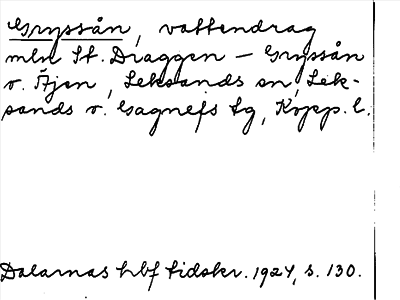 Gryssån, vattendrag
mln St. Draggen – Gryssån
o. Äjen, Leksands sn, Lek-
sands o. Gagnefs tg, Kopp. l.
Dalarnas hbf tidskr. 1924, s. 130.